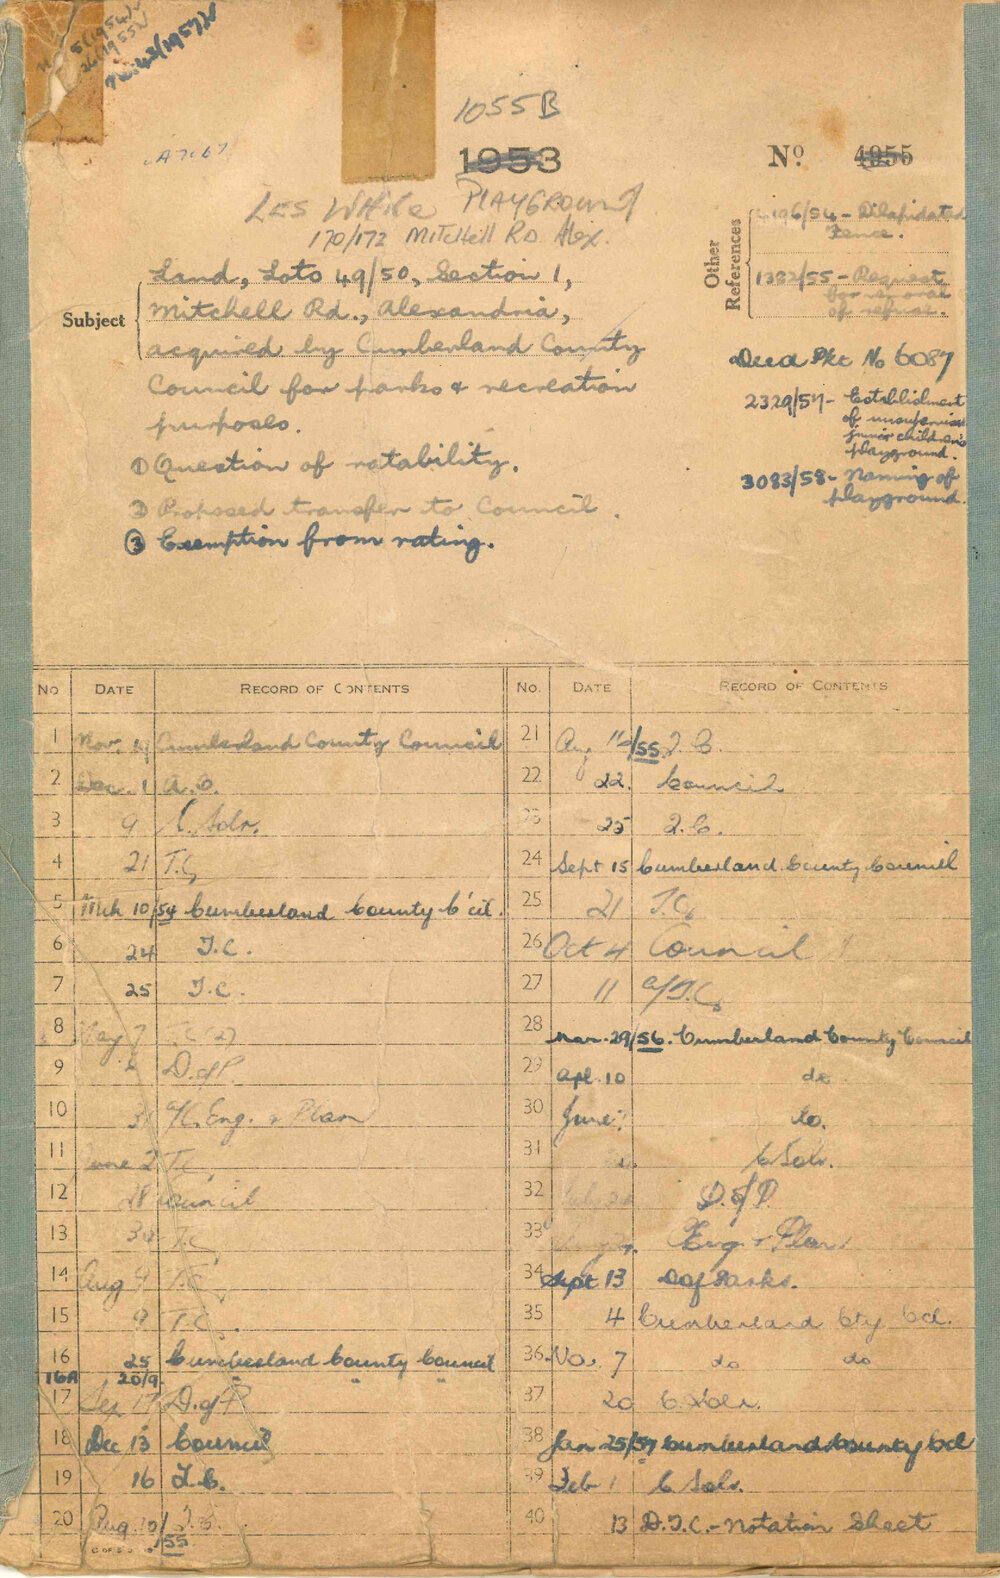 5(1954)
26(1955)
No. 43(1957)
1055B
1953
No. 4955
A7067
LES White PLAYGROUND
170/172 Mitchell Rd. Alex.
Subject
Land, Lots 49/50, Section 1,
Mitchell Rd., Alexandria,
acquired by Cumberland County
Council for parks & recreation
purposes.
① Question of ratability.
② Proposed transfer to Council.
③ Exemption from rating.
Other References
4196/54 - Dilapidated
Fence.
1382/55 - Request
for removal
of refuse.
Deed Pkt No 6087
2329/57 - Establishment
of unsupervised
junior children's
playground.
3083/58 - Naming of
playground.
No DATE RECORD OF CONTENTS
1 Nov. 19 Cumberland County Council
2 Dec. 1
3 9 C. Solr.
4 21 T.C.
5 Mch 10/54 Cumberland County C'cil.
6 24 T.C.
7 25 T.C.
8 May 7 T.C. (2)
9 D. of P.
10 31 A/C. Eng. & Plan
11 June 2 T.C.
12 28 Council
13 30 T.C.
14 Aug 9 T.C.
15 9 T.C.
16 25 Cumberland County Council
16A 20/9 " " "
17 Sep 17 D. of P
18 Dec 13 Council
19 16 T.C.
20 Aug. 10/55 T.C.
No. DATE RECORD OF CONTENTS
21 Aug 12/55 T.C.
22 22. Council
23 25 T.C.
24 Sept 15 Cumberland County Council
25 21 T.C.
26 Oct 4 Council
27 11 A/T.C.
28 Mar. 29/56. Cumberland County Council
29 Apl. 10 do
30 June 7 do.
31 C Solr.
32 D. of P.
33 Eng. & Plan.
34 Sept 13 D of Parks.
35 4 Cumberland Cty Ccl.
36 Nov. 7 do do
37 20 C Solr.
38 Jan 25/57 Cumberland County Ccl
39 Feb 1 C Solr.
40 13 D.T.C. - Notation Sheet